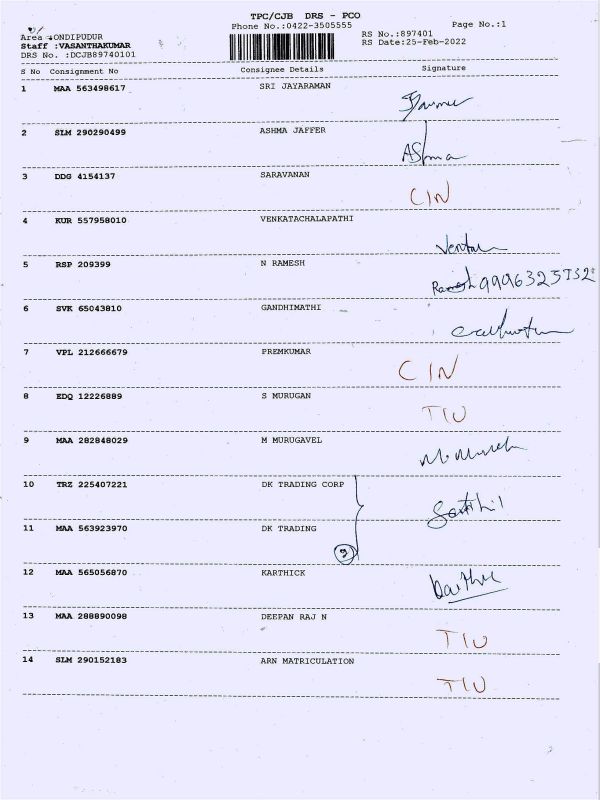 TPC/CJB DRS - PCO
Phone No.:0422-3505555 Page No.:1
Area :ONDIPUDUR RS No.:897401
Staff :VASANTHAKUMAR RS Date:25-Feb-2022
DRS No. :DCJB89740101
S No Consignment No Consignee Details Signature
1 MAA 563498617 SRI JAYARAMAN
2 SLM 290290499 ASHMA JAFFER
AShma
3 DDG 4154137 SARAVANAN
CIN
4 KUR 557958010 VENKATACHALAPATHI
5 RSP 209399 N RAMESH
Ramesh
6 SVK 65043810 GANDHIMATHI
7 VPL 212666679 PREMKUMAR
CIN
8 EDQ 12226889 S MURUGAN
TIU
9 MAA 282848029 M MURUGAVEL
10 TRZ 225407221 DK TRADING CORP
11 MAA 563923970 DK TRADING
12 MAA 565056870 KARTHICK
13 MAA 288890098 DEEPAN RAJ N
TIU
14 SLM 290152183 ARN MATRICULATION
TIU